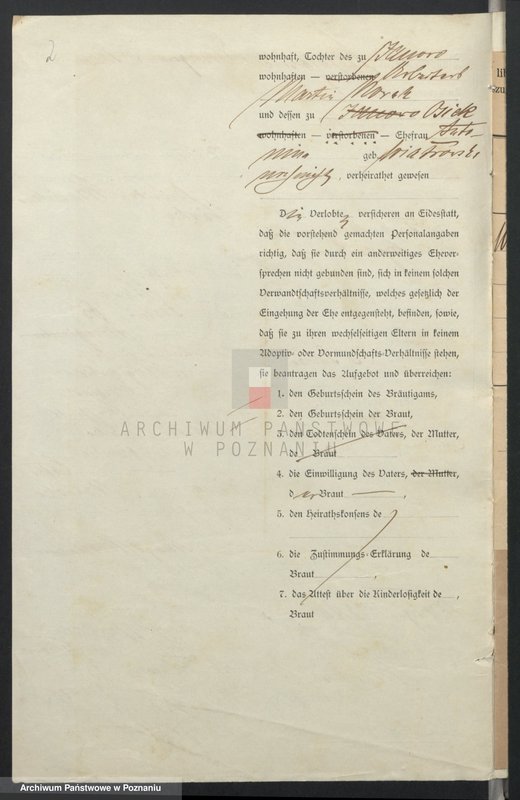 2
wohnhaft, Tochter des zu
wohnhaften — verstorbenen
Martin
und dessen zu
wohnhaften — verstorbenen — Ehefrau Anto-
nina geb.
verheirathet gewesen
Die Verlobten versicheren an Eidesstatt,
daß die vorstehend gemachten Personalangaben
richtig, daß sie durch ein anderweitiges Ehever-
sprechen nicht gebunden sind, sich in keinem solchen
Verwandtschaftsverhältnisse, welches gesetzlich der
Eingehung der Ehe entgegensteht, befinden, sowie,
daß sie zu ihren wechselseitigen Eltern in keinem
Adoptiv- oder Vormundschafts-Verhältnisse stehen,
sie beantragen das Aufgebot und überreichen:
1. den Geburtsschein des Bräutigams,
2. den Geburtschein der Braut,
ARCHIWUM PAŃSTWOWE
3. den Todtenschein des Vaters, der Mutter,
W POZNANIU
de Braut
4. die Einwilligung des Vaters, der Mutter,
der Braut — ,
5. den Heirathskonsens de
6. die Zustimmungs-Erklärung de
Braut ,
7. das Attest über die Kinderlosigkeit de ,
Braut
Archiwum Państwowe w Poznaniu